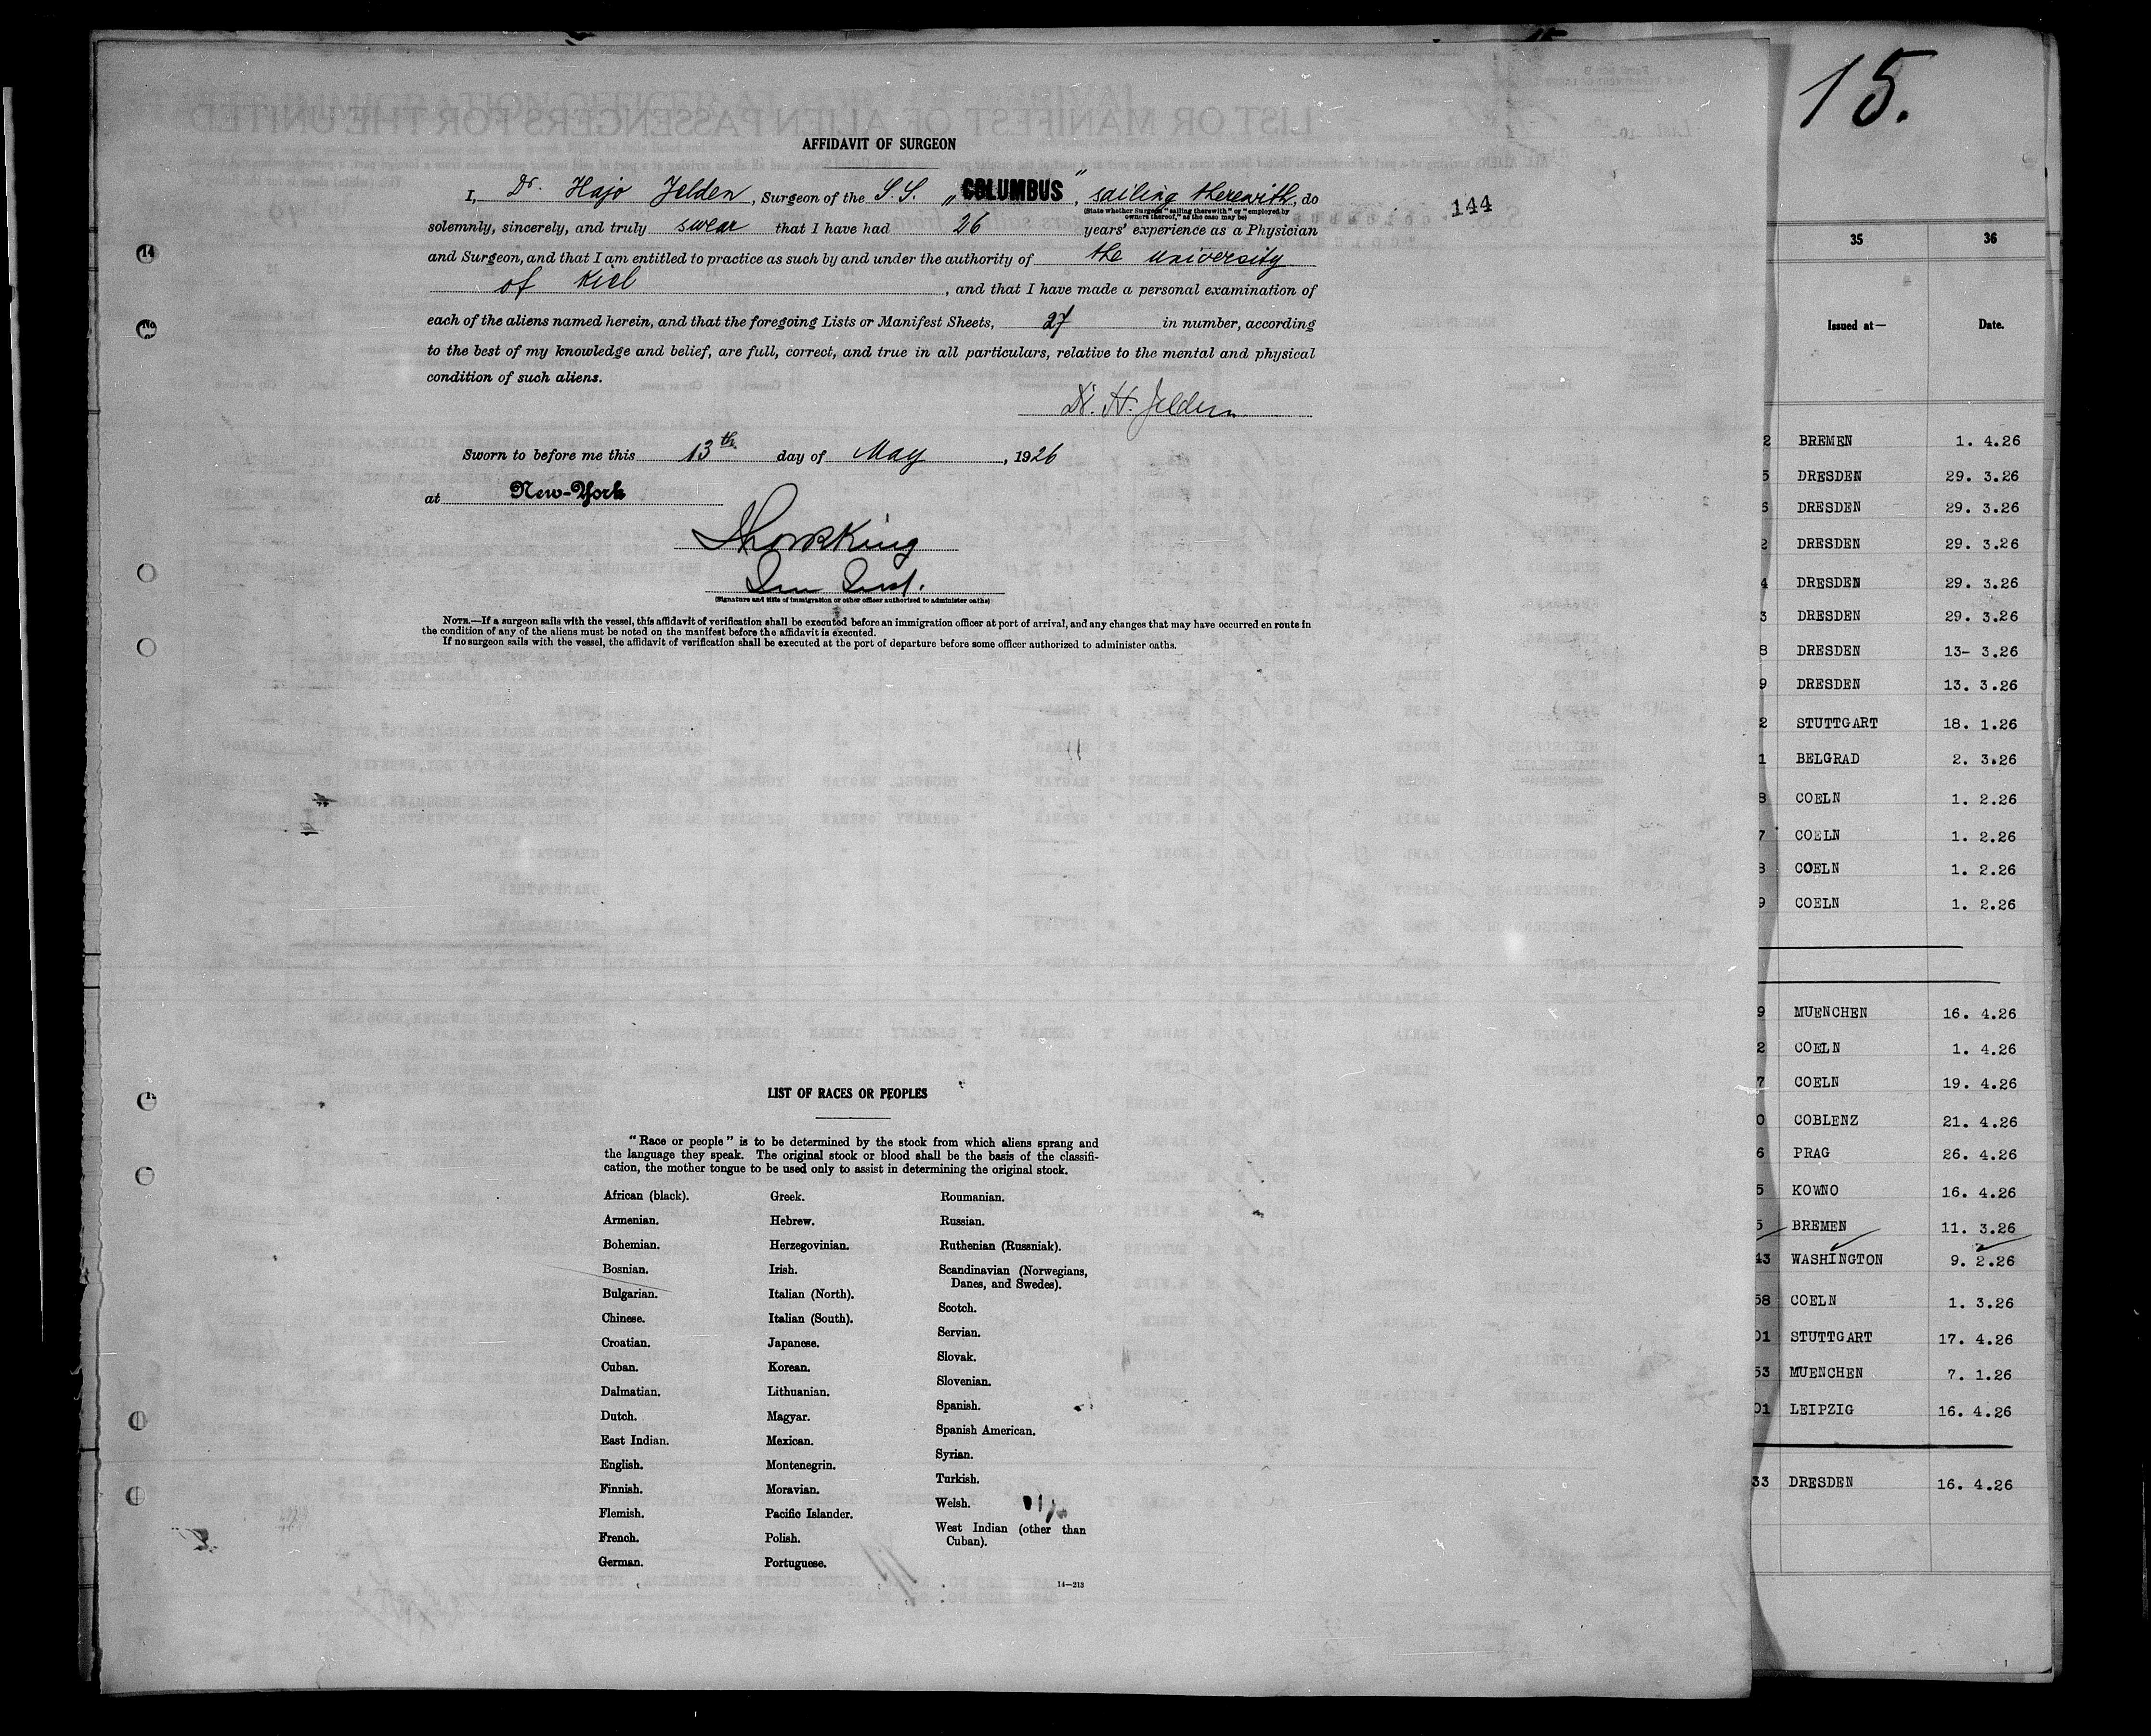 15.
AFFIDAVIT OF SURGEON
I, Dr. Hajo Jelden, Surgeon of the S.S. „COLUMBUS", sailing therewith, do
(State whether Surgeon "sailing therewith" or "employed by
owners thereof," as the case may be)
144
solemnly, sincerely, and truly swear that I have had 26 years' experience as a Physician
and Surgeon, and that I am entitled to practice as such by and under the authority of the university
of Kiel, and that I have made a personal examination of
each of the aliens named herein, and that the foregoing Lists or Manifest Sheets, 27 in number, according
to the best of my knowledge and belief, are full, correct, and true in all particulars, relative to the mental and physical
condition of such aliens.
Dr. H. Jelden
Sworn to before me this 13th day of May, 1926
at New-York
(Signature and title of immigration or other officer authorized to administer oaths)
NOTE.—If a surgeon sails with the vessel, this affidavit of verification shall be executed before an immigration officer at port of arrival, and any changes that may have occurred en route in
the condition of any of the aliens must be noted on the manifest before the affidavit is executed.
If no surgeon sails with the vessel, the affidavit of verification shall be executed at the port of departure before some officer authorized to administer oaths.
LIST OF RACES OR PEOPLES
"Race or people" is to be determined by the stock from which aliens sprang and
the language they speak. The original stock or blood shall be the basis of the classifi-
cation, the mother tongue to be used only to assist in determining the original stock.
African (black).
Armenian.
Bohemian.
Bosnian.
Bulgarian.
Chinese.
Croatian.
Cuban.
Dalmatian.
Dutch.
East Indian.
English.
Finnish.
Flemish.
French.
German.
Greek.
Hebrew.
Herzegovinian.
Irish.
Italian (North).
Italian (South).
Japanese.
Korean.
Lithuanian.
Magyar.
Mexican.
Montenegrin.
Moravian.
Pacific Islander.
Polish.
Portuguese.
Roumanian.
Russian.
Ruthenian (Russniak).
Scandinavian (Norwegians,
Danes, and Swedes).
Scotch.
Servian.
Slovak.
Slovenian.
Spanish.
Spanish American.
Syrian.
Turkish.
Welsh.
West Indian (other than
Cuban).
14—213
35 36
Issued at— Date.
2 BREMEN 1. 4.26
5 DRESDEN 29. 3.26
6 DRESDEN 29. 3.26
2 DRESDEN 29. 3.26
4 DRESDEN 29. 3.26
3 DRESDEN 29. 3.26
8 DRESDEN 13- 3.26
9 DRESDEN 13. 3.26
2 STUTTGART 18. 1.26
1 BELGRAD 2. 3.26
8 COELN 1. 2.26
7 COELN 1. 2.26
8 COELN 1. 2.26
9 COELN 1. 2.26
9 MUENCHEN 16. 4.26
2 COELN 1. 4.26
7 COELN 19. 4.26
0 COBLENZ 21. 4.26
6 PRAG 26. 4.26
5 KOWNO 16. 4.26
5 BREMEN 11. 3.26
43 WASHINGTON 9. 2.26
58 COELN 1. 3.26
01 STUTTGART 17. 4.26
53 MUENCHEN 7. 1.26
01 LEIPZIG 16. 4.26
33 DRESDEN 16. 4.26